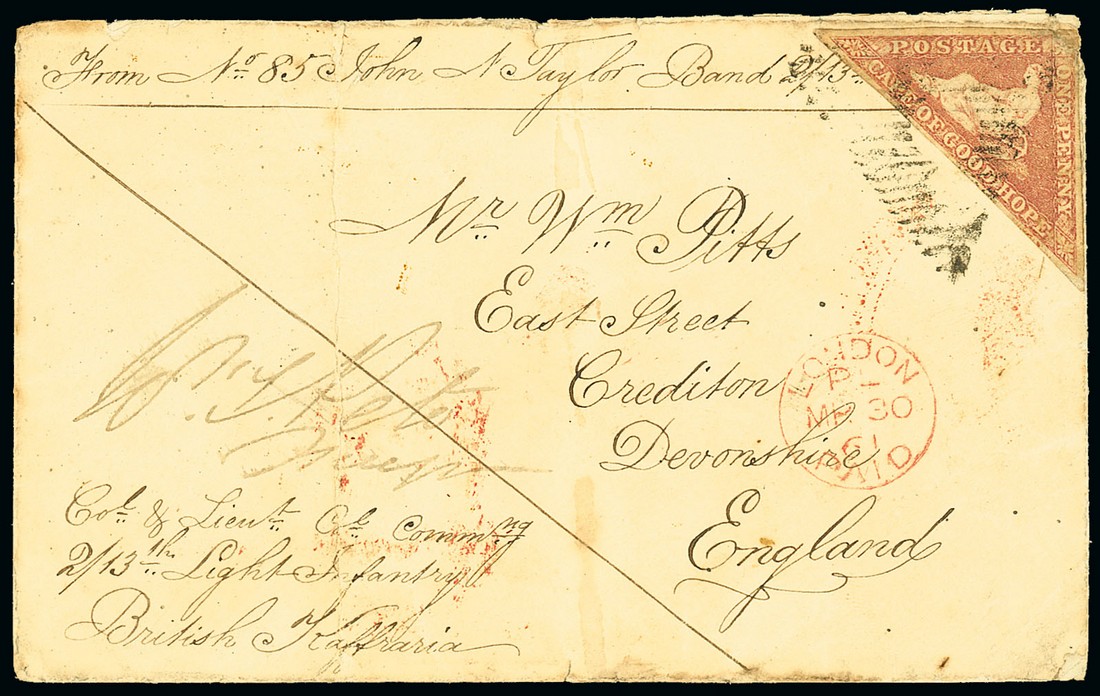 From No 85 John N Taylor Band 2/13th
POSTAGE
ONE PENNY
CAPE OF GOOD HOPE
Mr. Wm. Pitts
East Street
Crediton
Devonshire
England
LONDON
MR 30
61
PAID
Col. & Lieut. Col. Comm.ng
2/13th. Light Infantry
British Kaffraria